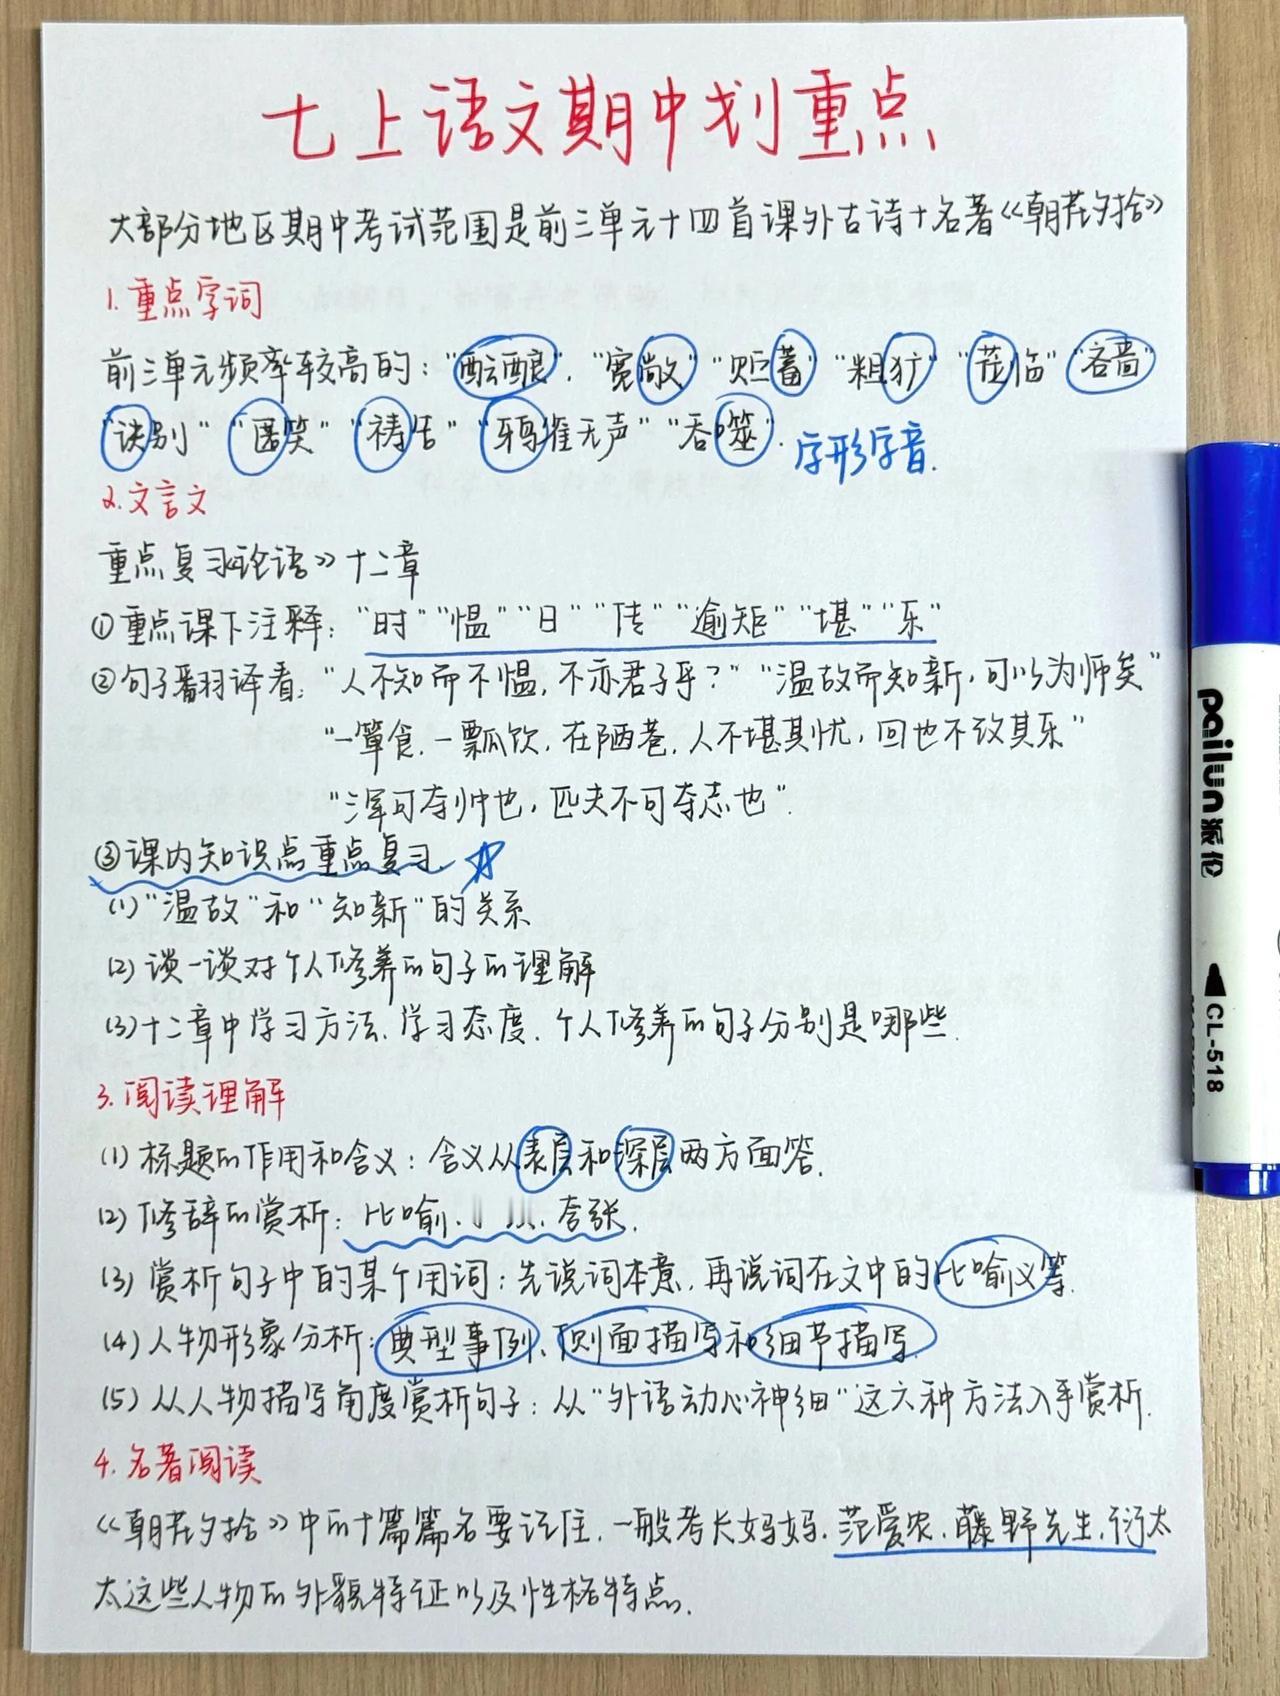 七上语文期中划重点
大部分地区期中考试范围是前三单元+四首课外古诗+名著《朝花夕拾》
1.重点字词
前三单元频率较高的：“酝酿”.“宽敞”“贮蓄”“粗犷”“莅临”“吝啬”
“诀别”“匿笑”“祷告”“鸦雀无声”“吞噬”.字形字音.
2.文言文
重点复习论语》十二章
①重点课下注释：“时”“愠”“日”“传”“逾矩”“堪”“乐”
②句子翻译看：“人不知而不愠,不亦君子乎?”“温故而知新,可以为师矣”
“一箪食.一瓢饮,在陋巷.人不堪其忧,回也不改其乐”
“三军可夺帅也,匹夫不可夺志也”.
③课内知识点重点复习.
(1)“温故”和“知新”的关系
(2)谈一谈对个人修养的句子的理解
(3)十二章中学习方法.学习态度.个人修养的句子分别是哪些.
3.阅读理解
(1)标题的作用和含义：含义从表层和深层两方面答.
(2)修辞的赏析：比喻.夸张.
(3)赏析句子中的某个用词：先说词本意,再说词在文中的比喻义等.
(4)人物形象分析：典型事例、侧面描写和细节描写.
(5)从人物描写角度赏析句子：从“外语动心神细”这六种方法入手赏析.
4.名著阅读
《朝花夕拾》中的十篇篇名要记住.一般考长妈妈.范爱农.藤野先生.衍太
太这些人物的外貌特征以及性格特点.
pailun派伦
CL-518